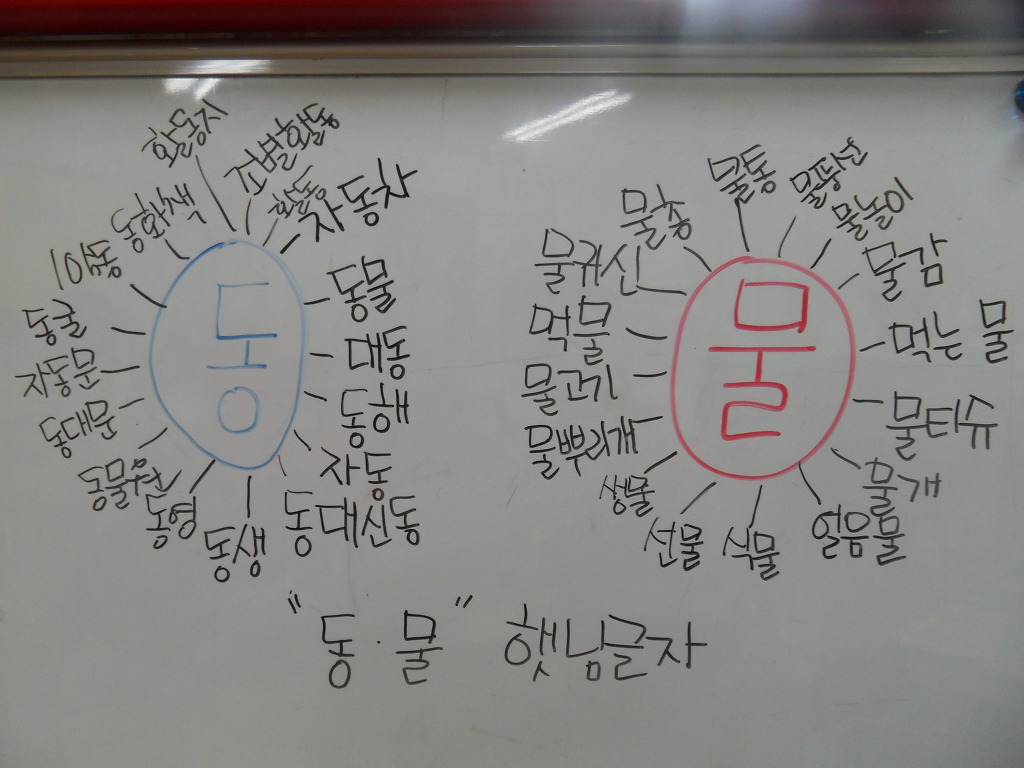 동
활동지
조별활동
활동
자동차
동물
대동
동해
자동
동대신동
동생
동영
동물원
동대문
자동문
동굴
동화책
물
물통
물풍선
물놀이
물감
먹는 물
물티슈
물개
얼음물
식물
선물
생물
물뿌리개
물고기
먹물
물귀신
물총
"동·물" 햇님글자